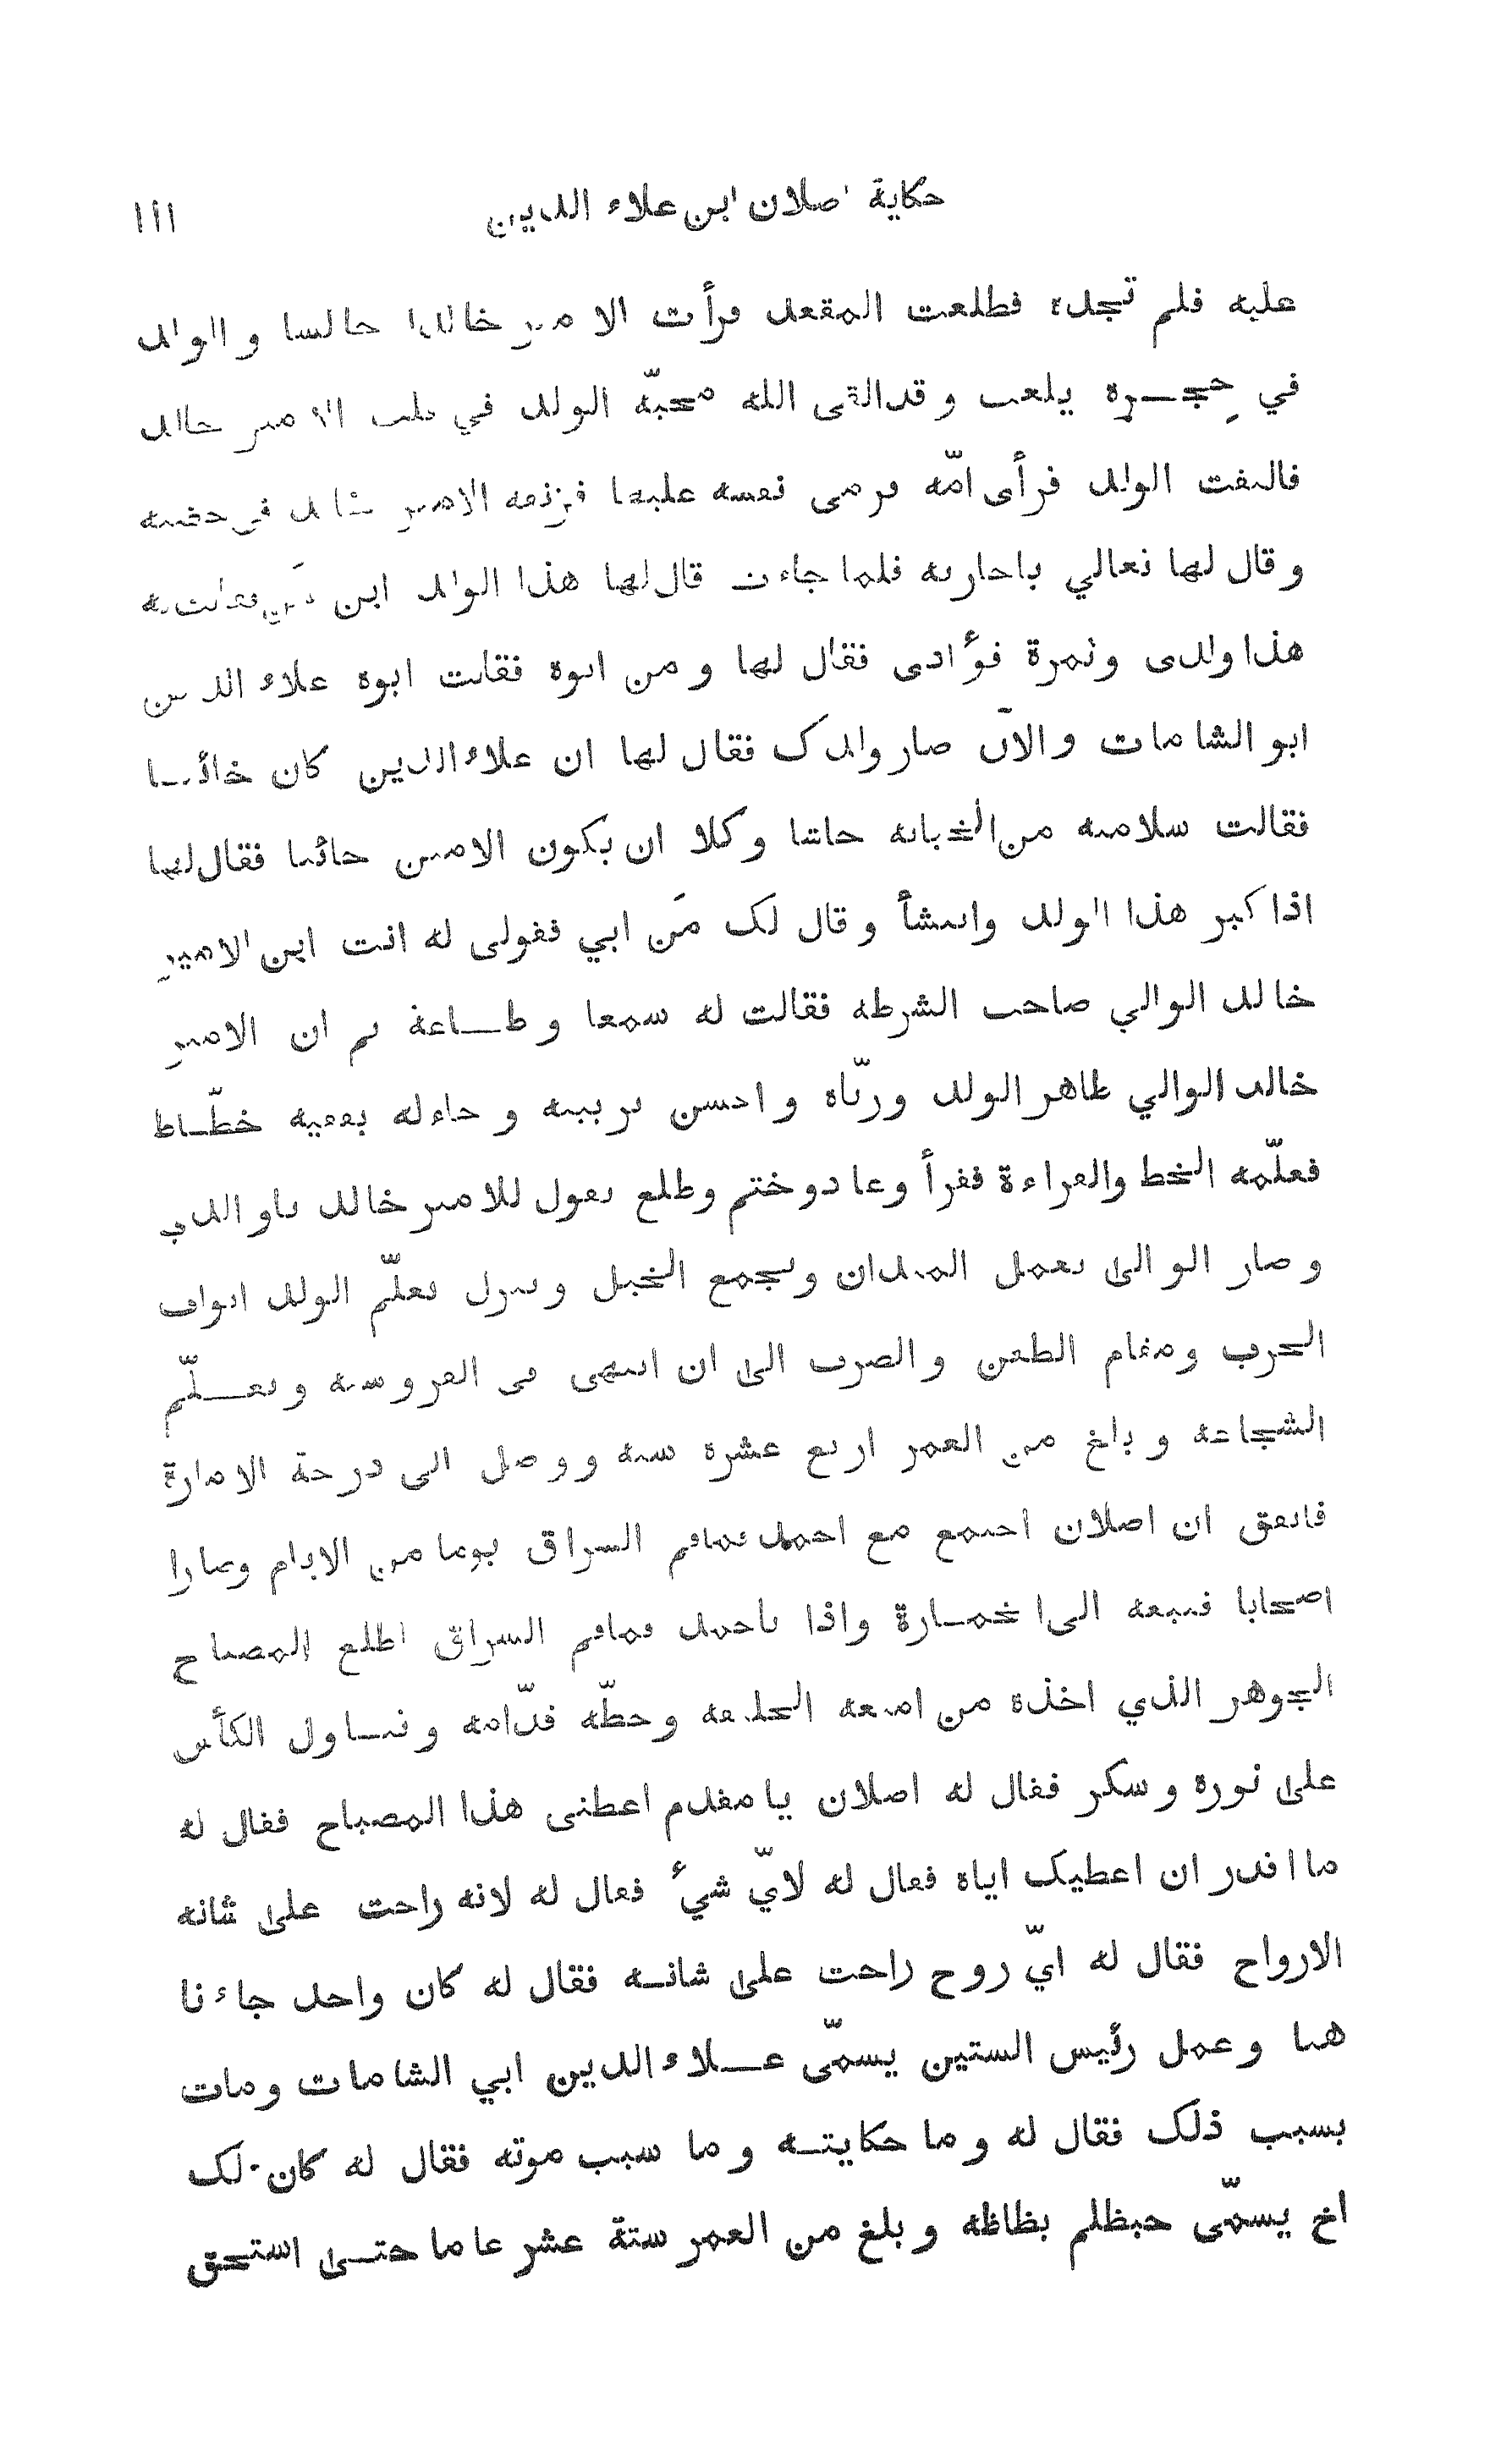 حكاية اصلان ابن علاء الدين ١١١
عليه فلم تجده فطلعت المقعد فرأت الامير خالدا جالسا والولد
في حِجـره يلعب وقد القى الله محبّة الولد في قلب الامير خالد
فالتفت الولد فرأى امّه فرمى نفسه عليها فزنقه الامير خالد في حضنه
وقال لها تعالي ياجارية فلما جاءت قال لها هذا الولد ابن مَن فقالت له
هذا ولدى وثمرة فؤادى فقال لها ومن ابوه فقالت ابوه علاء الدين
ابو الشامات والآن صار ولدك فقال لها ان علاء الدين كان خائنـا
فقالت سلامته من الخيانة حاشا وكلا ان يكون الامين خائنا فقال لها
اذا كبر هذا الولد وانتشأ وقال لك مَن ابي فقولى له انت ابن الامير
خالد الوالي صاحب الشرطة فقالت له سمعا وطـاعة ثم ان الامير
خالد الوالي طاهر الولد وربّاه واحسن تربيته وجاء له بفقيه خطّـاط
فعلّمه الخط والقراءة فقرأ وعاد وختم وطلع يقول للامير خالد ياوالدي
وصار الوالى يعمل الميدان ويجمع الخيل وينزل يعلّم الولد ابواب
الحرب ومقام الطعن والضرب الى ان انتهى فى الفروسية وتعـلّم
الشجاعة وبلغ من العمر اربع عشرة سنة ووصل الى درجة الامارة
فاتفق ان اصلان اجتمع مع احمد قماقم السراق يوما من الايام وصارا
اصحابا فتبعه الى الخمـارة واذا باحمد قماقم السراق اطلع المصباح
الجوهر الذي اخذه من امتعة الخليفة وحطّه قدّامه وتنـاول الكأس
على نوره وسكر فقال له اصلان يا مقدم اعطنى هذا المصباح فقال له
ما اقدر ان اعطيك اياه فقال له لايّ شئ فقال له لانه راحت على شانه
الارواح فقال له ايّ روح راحت على شانـه فقال له كان واحد جاءنا
هنا وعمل رئيس الستين يسمّى عـلاء الدين ابي الشامات ومات
بسبب ذلك فقال له وما حكايتـه وما سبب موته فقال له كان لك
اخ يسمّى حبظلم بظاظه وبلغ من العمر ستة عشر عاما حتـى استحق